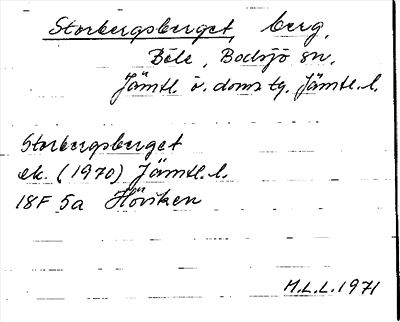 Storbergsberget, berg,
Böle, Bodsjö sn.
Jämtl. ö. doms tg. Jämtl. l.
Storbergsberget
ek. (1970) Jämtl. l.
18F 5a Höviken
M.L.L. 1971